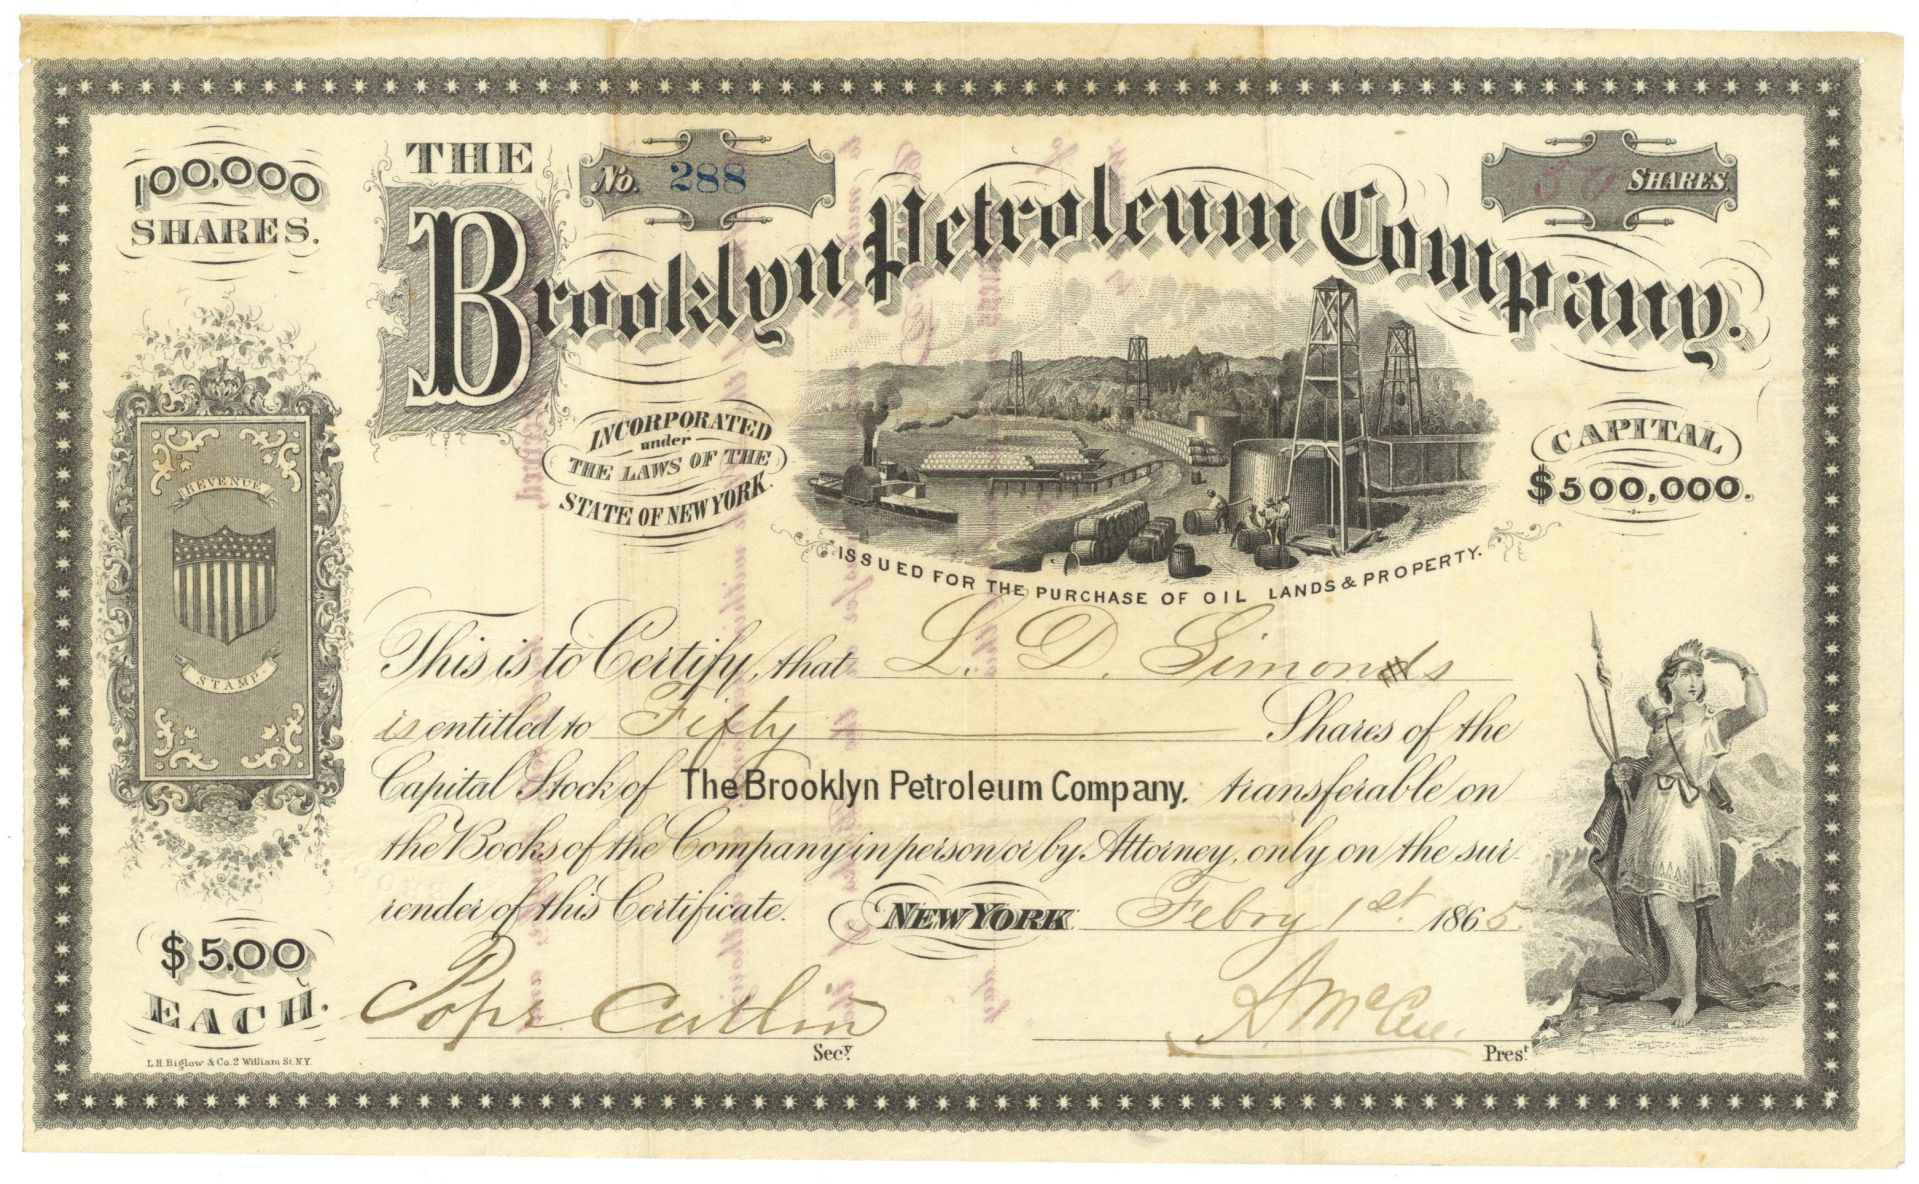 100,000
SHARES.
THE
No. 288
50 SHARES.
Brooklyn Petroleum Company.
INCORPORATED
under
THE LAWS OF THE
STATE OF NEW YORK.
CAPITAL
$500,000.
REVENUE
STAMP.
ISSUED FOR THE PURCHASE OF OIL LANDS & PROPERTY.
This is to Certify, that L. D. Simonds
is entitled to Fifty Shares of the
Capital Stock of The Brooklyn Petroleum Company. transferable on
the Books of the Company in person or by Attorney, only on the sur-
render of this Certificate. NEW YORK Febry 1st. 1865.
$5.00
EACH.
Pope Catlin
Secy.
A McCue.
Prest
L.H. Biglow & Co. 2 William St. N.Y.